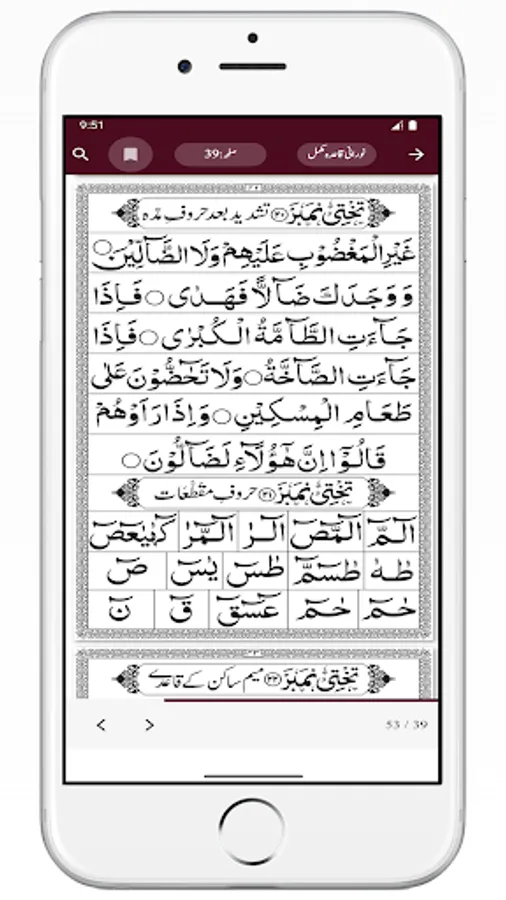 9:51
نورانی قاعدہ مکمل
صفحہ:39
تختی نمبر ۲۰ تشدید بعد حروفِ مدّہ
غَيْرِ الْمَغْضُوْبِ عَلَيْهِمْ وَلَا الضَّآلِّيْنَ ○
وَوَجَدَكَ ضَآلًّا فَهَدٰى ○ فَاِذَا
جَآءَتِ الطَّآمَّةُ الْكُبْرٰى ○ فَاِذَا
جَآءَتِ الصَّآخَّةُ ○ وَلَا تَحٰٓضُّوْنَ عَلٰى
طَعَامِ الْمِسْكِيْنِ ○ وَاِذَا رَاَوْهُمْ
قَالُوْٓا اِنَّ هٰٓؤُلَآءِ لَضَآلُّوْنَ ○
تختی نمبر ۲۱ حروفِ مقطّعات
الٓمّٓ الٓمّٓصٓ الٓرٰ الٓمّٓرٰ كٓهٰيٰعٓصٓ
طٰهٰ طٰسٓمّٓ طٰسٓ يٰسٓ صٓ
حٰمٓ حٰمٓ عٓسٓقٓ قٓ نٓ
تختی نمبر ۲۲ میم ساکن کے قاعدے
53 / 39